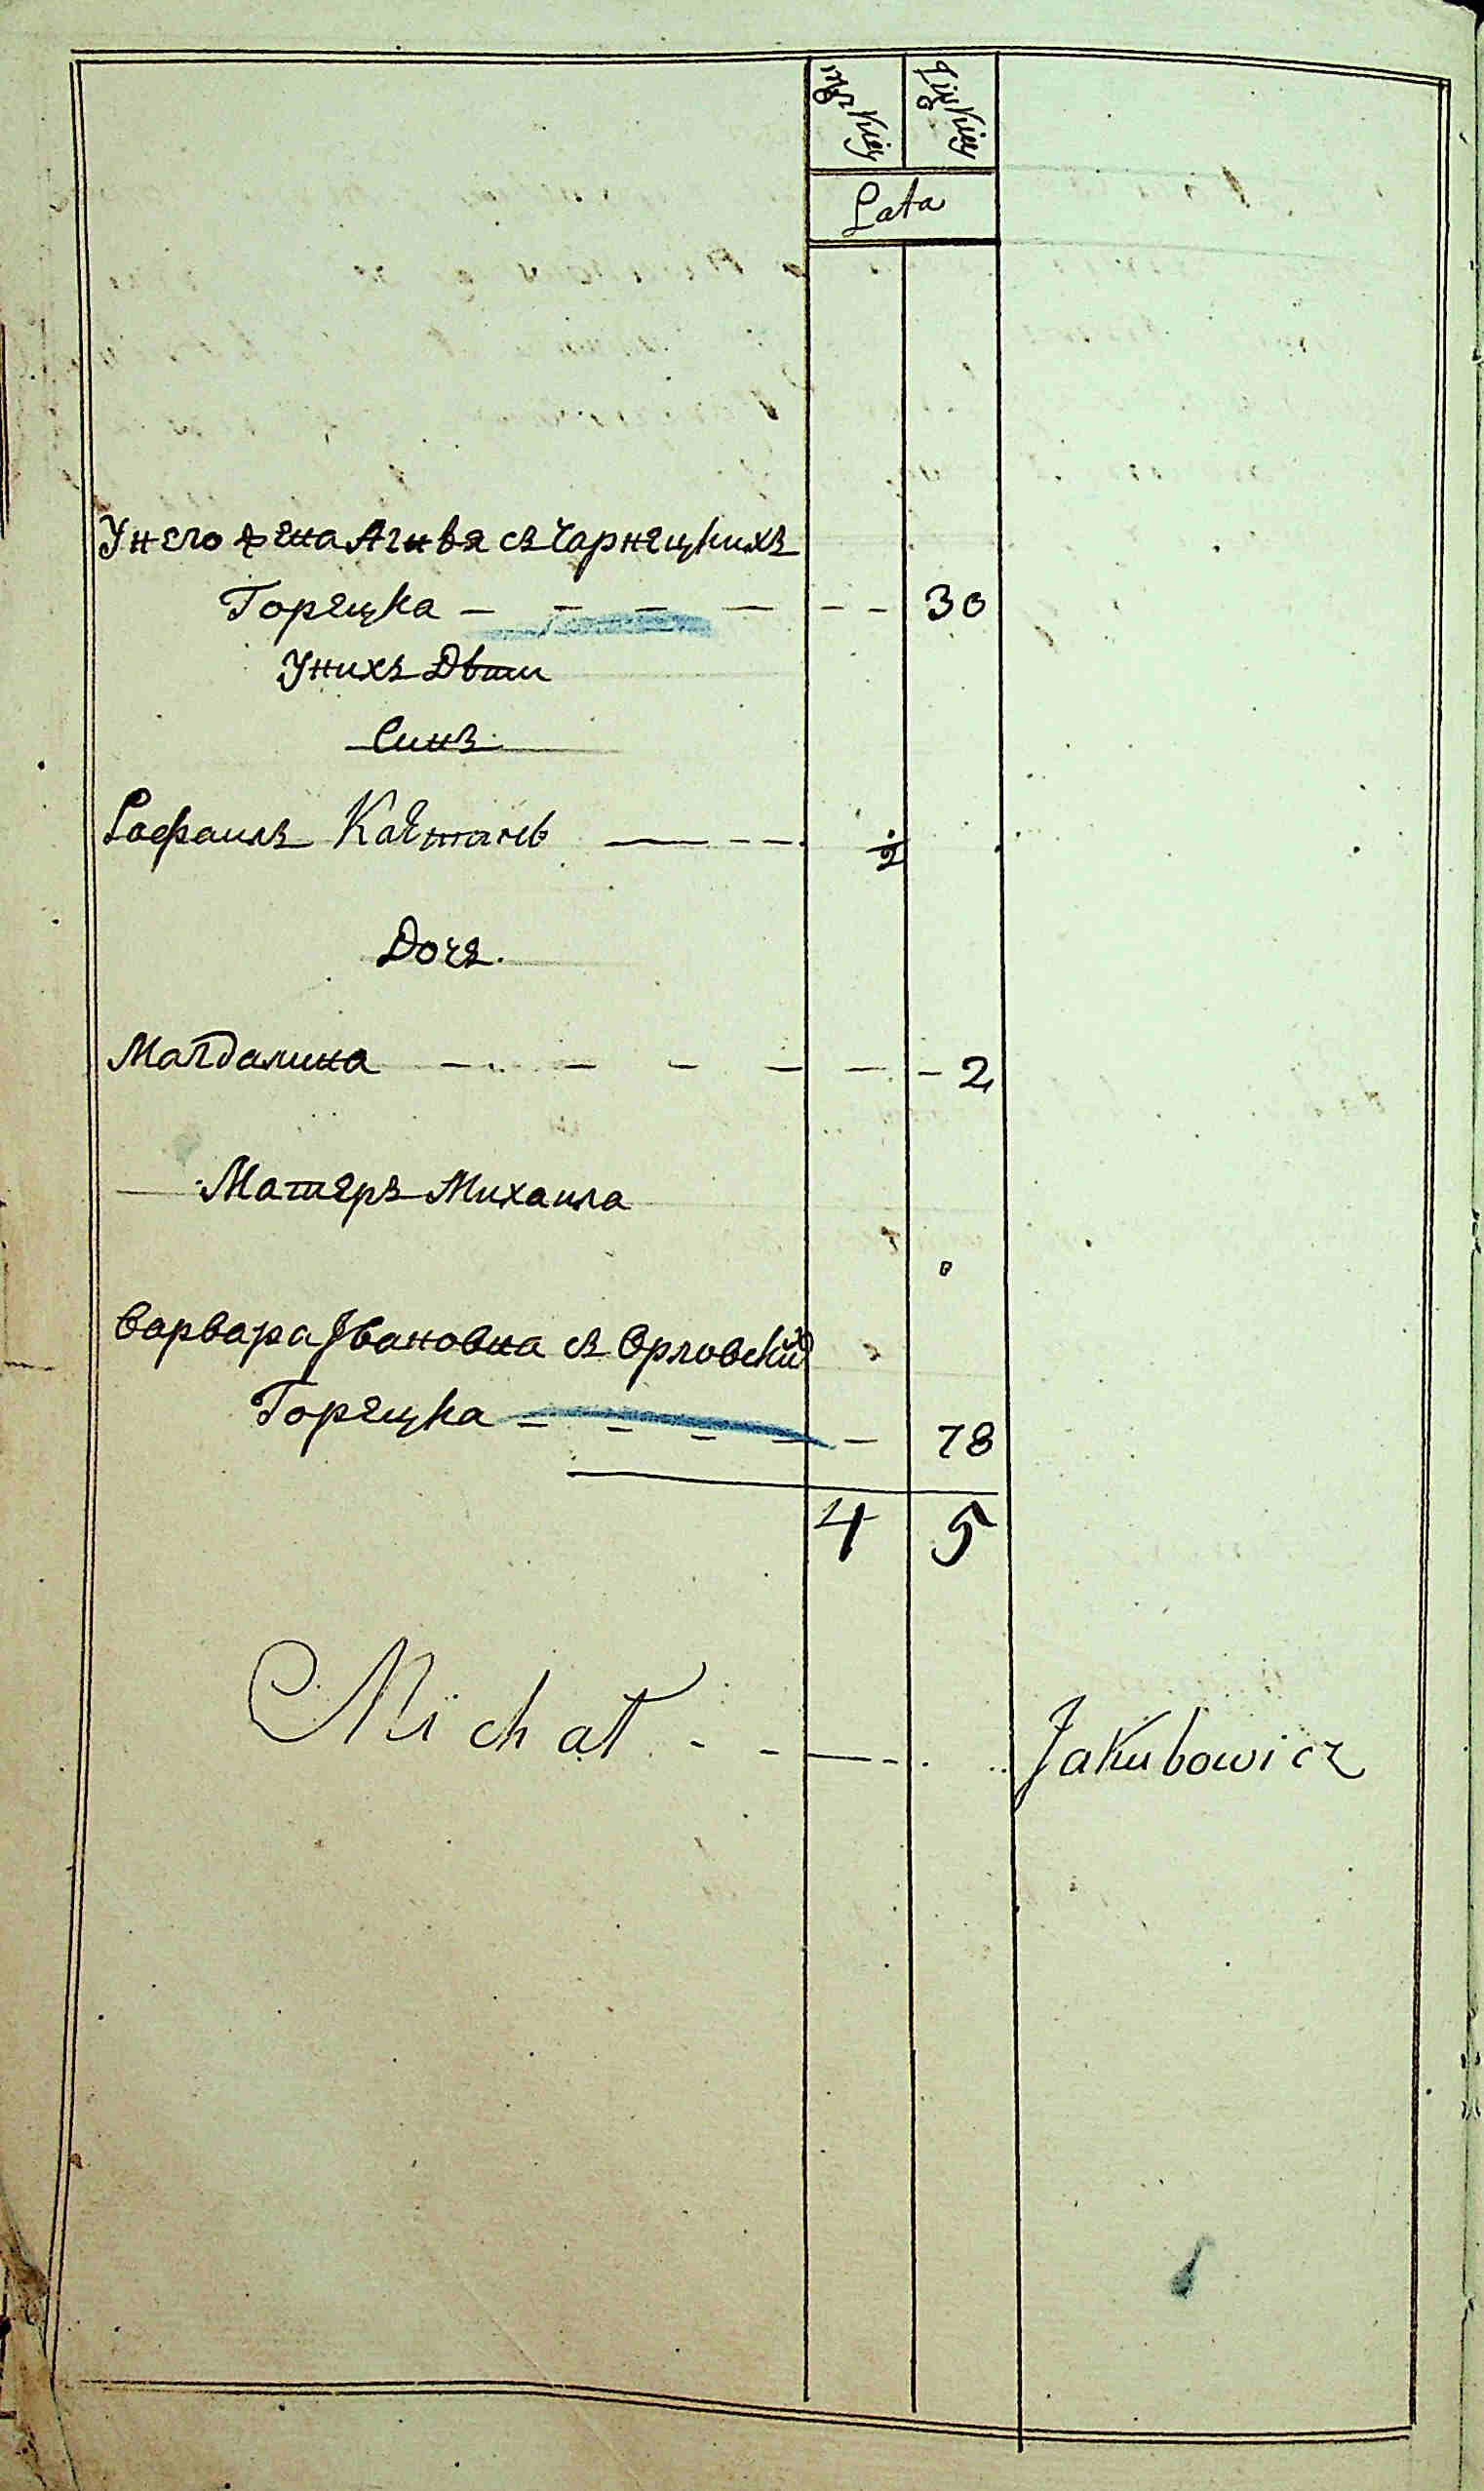 Męzkiey Żeńskiey
Lata
У него жена Агнѣя съ Чарнецкихъ
Горецка — — — — — — 30
У нихъ Дѣти
Синъ
Рафаилъ Каетанъ — — — 1/2
Дочъ.
Магдалина — — — — — — 2
Матеръ Михаила
Варвара Ивановна съ Орловских
Горецка — — — — — 78
4 5
Michał - - — - . .. Jakubowicz